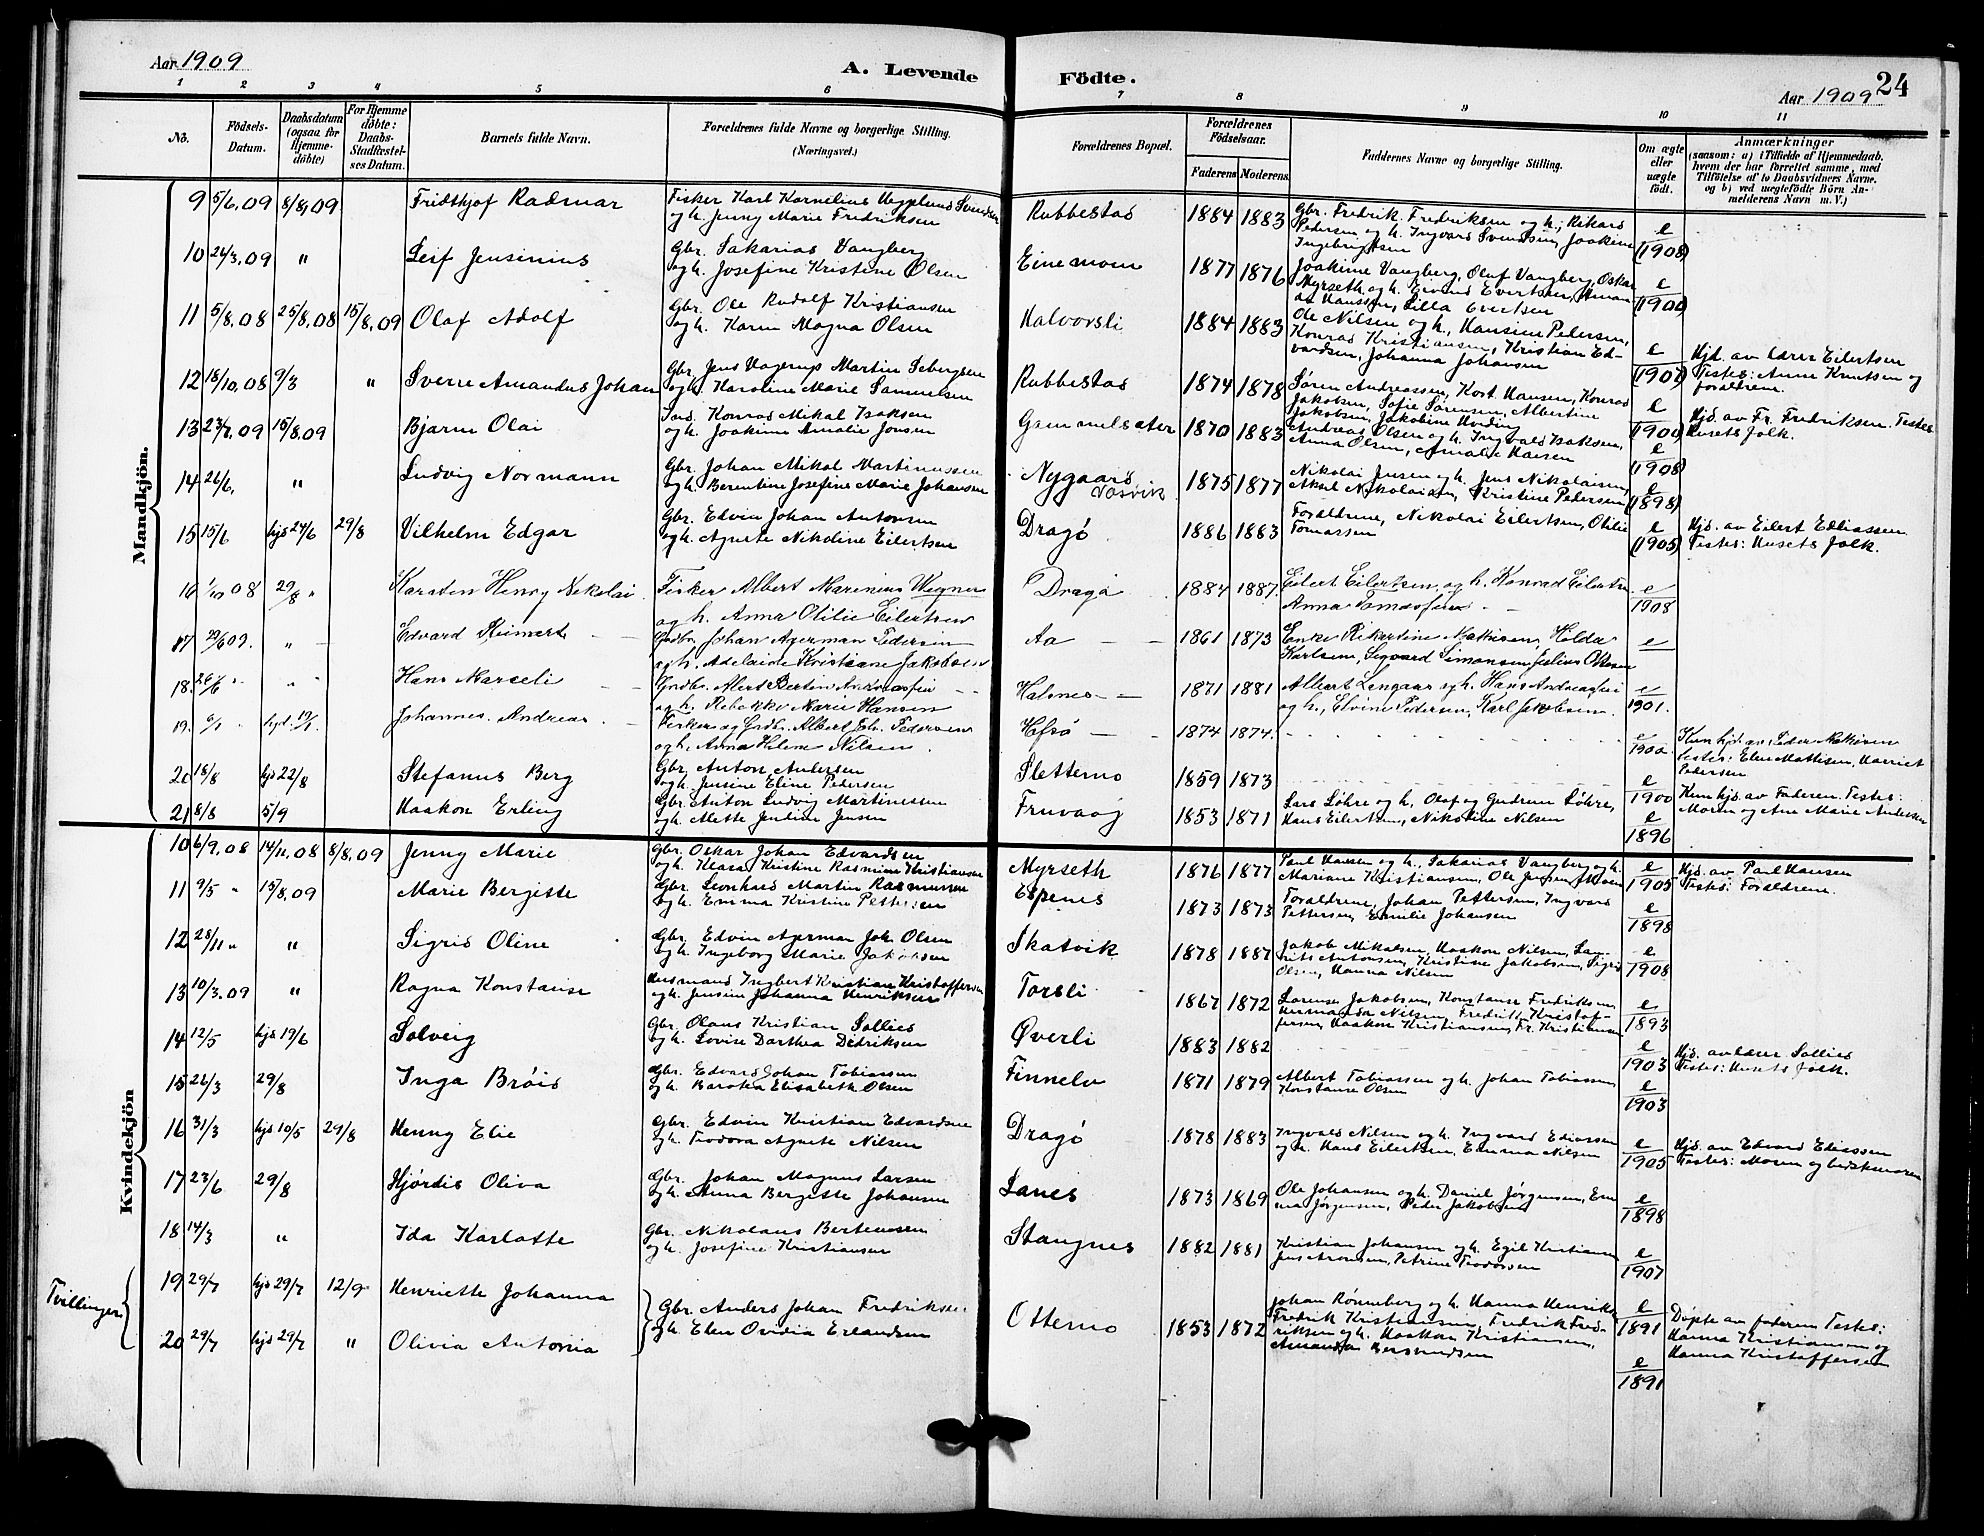 Aar 1909
A. Levende
Födte.
24
Aar 1909
1 2 3 4 5 6 7 8 9 10 11
No.
Födsels-Datum.
Daabsdatum (ogsaa for Hjemme-döbte)
For Hjemme döbte: Daabs-Stadfæstel-ses Datum.
Barnets fulde Navn.
Forældrenes fulde Navne og borgerlige Stilling. (Næringsvei.)
Forældrenes Bopæl.
Forældrenes Födselsaar.
Faderens Moderens
Faddernes Navne og borgerlige Stilling.
Om ægte eller uægte födt.
Anmærkninger
(saasom: a) i Tilfælde af Hjemmedaab, hvem der har forrettet samme, med Tilföielse af to Daabsvidners Navne. og b) ved uægtefödte Börn Anmelderens Navn m. V.)
Mandkjön.
9 5/6.09 8/8.09 Fridthjof Radmar Fisker Karl Kornelius Svendsen og h. Jenny Marie Fredriksen Rubbestad 1884 1883 Gbr. Fredrik Fredriksen og h; Rikard Pedersen og h. Ingvard Svendsen, Joakim Ingebrigtsen e (1908)
10 24/3.09 " Leif Jensinius Gbr. Sakarias Vangberg og h. Josefine Kristine Olsen Einemoen 1877 1876 Joakime Vangberg, Oluf Vangberg, Oskar Myrseth og h. Eivind Evertsen, Hanssen, Lilla Evertsen e (1900)
11 5/8.08 25/8.08 15/8.09 Olaf Adolf Gbr. Ole Rudolf Kristiansen og h. Karen Magna Olsen Halvorsli 1884 1883 Ole Nilsen og h., Hansine Pedersen, Konrad Kristiansen, Kristian Edvardsen, Johanna Johansen e (1907) Hjd. av lærer Eilertsen Testes: Anne Knutsen og forældrene.
12 18/10.08 9/3 " Sverre Amandus Johan Gbr. Jens Martin Sebergsen og h. Karoline Marie Samuelsen Rubbestad 1874 1878 Søren Andreassen, Kort Hansen, Konrad Jakobsen, Sofie Sørensen, Albertine Jakobsen, Jakobine Hveding e (1900) Hjd. av Fr. Fredriksen. Testes Husets folk.
13 23/7.09 15/8.09 Bjarne Olai Ind. Konrad Mikal Isaksen og h. Joakime Amalie Jensen Grimmelsæter 1870 1883 Andreas Olsen og h. Ingvald Isaksen, Anna Olsen, Amalie Hansen e (1908)
14 26/6. " Ludvig Normann Gbr. Johan Mikal Martinussen og h. Berentine Josefine Marie Johansen Nygaard Vasvik 1875 1877 Nikolai Jensen og h. Jens Nikolaisen, Aksel Nikolaisen, Kristine Pedersen e (1898)
15 15/6 hjd 24/6 29/8 Vilhelm Edgar Gbr. Edvin Johan Antonsen og h. Agnete Nikoline Eilertsen Dragö 1886 1883 Forældrene, Nikolai Eilertsen, Otilie Tomassen e (1905) Hjd. av Eilert Eliassen Testes: Husets folk.
16 1/10 08 29/8 " Karsten Henry Nikolai Fisker Albert Marenius Wegner og h. Anna Otilie Eilertsen Dragö 1884 1887. Eilert Eilertsen og h. Konrad Eilertsen Anna Tomassen e 1908
17 29/6 09. " Edvard Reimert Gndbr. Johan Agerman Pedersen og h. Adelaide Kristiane Jakobsen Aa 1861 1873 Enke Rikardine Mathisen, Hilda Karlsen, Sigvard Simonsen, Julius Ottesen e
18. 26/6 " " Hans Marseli Gndbr. Alert Bertin Andreassen og h. Rebekka Marie Hansen Halsnes 1871 1881 Albert Lengaas og h. Hans Andreassen og h., Elvine Pedersen, Karl Jakobsen. e 1901.
19. 6/7 hjd. 19/7. Johannes Andreas Fisker og Gndb. Albert Joh. Pedersen og h. Anna Helene Nilsen Hefsö 1874 1874. e 1900. Kun hjd. av Peder Mathisen testes: Elen Mathisen, Harriet Pedersen
20 18/8 hjd 22/8 Stefanus Berg Gbr. Anton Andersen og h. Jensine Eline Pedersen Sletterno 1859 1873 e 1900 Kun hjd. av Faderen. Testes: Moren og Ane Marie Andersen
21 8/8 5/9 Haakon Erling Gbr. Anton Ludvig Martinussen og h. Mette Jendine Jensen Fruvaag 1853 1871 Lars Löhre og h, Olaf og Gudrun Löhre, Hans Eilertsen, Nikoline Nilsen e 1896
Kvindekjön
10 6/9.08 14/11.08 8/8.09 Jenny Marie Gbr. Oskar Johan Edvardsen og h. Klara Kristine Rasmine Kristiansen Myrseth 1876 1877 Paul Hansen og h. Sakarias Vangberg og h. Mariane Kristiansen, Ole Jensen e 1905 Hjd. av Paul Hansen Testes: Forældrene.
11 9/5 " 15/8.09 Marie Bergitte Gbr. Leonhard Martin Rasmussen og h. Emma Kristine Pettersen Espenes 1873 1873 Forældrene, Johan Pettersen, Ingvard Pettersen, Emilie Johansen e 1898
12 28/11 " " Sigrid Oline Gbr. Edvin Agerman Joh. Olsen og h. Ingeborg Marie Jakobsen Skatvik 1878 1887 Jakob Mikalsen, Haakon Nilsen, Laurits Antonsen, Kristine Jakobsen, Sigrid Olsen, Hanna Nilsen e 1908
13 10/3.09 " Ragna Konstanse Husmand Ingbert Kristian Kristoffersen og h. Jensine Johanna Henriksen Torsli 1867 1872 Lorense Jakobsen, Konstanse Fredriksen Nilsen, Fredrik Kristoffersen, Haakon Kristiansen, Fr. Kristiansen e 1893
14 12/5 hjd 19/6 Solveig Gbr. Olaus Kristian Sollied og h. Lovise Dorthea Didriksen Øverli 1883 1882 e 1903 Hjd. av lærer Sollied Testes: Husets folk.
15 26/3 29/8 Inga Bröid Gbr. Edvard Johan Tobiassen og h. Baroka Elisabeth Olsen Finnelv 1871 1879 Albert Tobiassen og h. Johan Tobiassen Konstanse Olsen e 1903
16 31/3 hjd 10/5 29/8 Henny Elie Gbr. Edvin Kristian Edvardsen og h. Teodora Agnete Nilsen Dragö 1878 1883 Ingvald Nilsen og h. Ingvard og h. Hans Eilertsen, Emma Nilsen e 1905 Hjd. av Edvard Eliassen Testes: Moren og bedstemoren
17 23/6 29/8 Hjördis Oliva Gbr. Johan Magnus Larsen og h. Anna Bergitte Johansen Lanes 1873 1869 Ole Johansen og h. Daniel Jörgensen, Emma Jörgensen, Peder Jakobsen e 1898
18 14/3 " Ida Karlotte Gbr. Nikolaus Berteussen og h. Josefine Kristiansen Stangnes 1882 1881 Kristian Johansen og h. Egil Kristiansen Jens Aronsen, Petrine Teodorsen e 1907
Tvillinger
19 29/7 hjd 29/7 12/9 Henriette Johanna Gbr. Anders Johan Fredriksen og h. Elen Ovidia Erlandsen Otterno 1853 1872 Johan Rönneberg og h. Hanna Henriksen Fredrik Kristiansen, Fredrik Fredriksen og h. Haakon Kristiansen, e 1891 Döpte av faderen Testes: Hanna Kristiansen og Hanna Kristoffersen
20 29/7 hjd 29/7 " Olivia Antonia e 1891